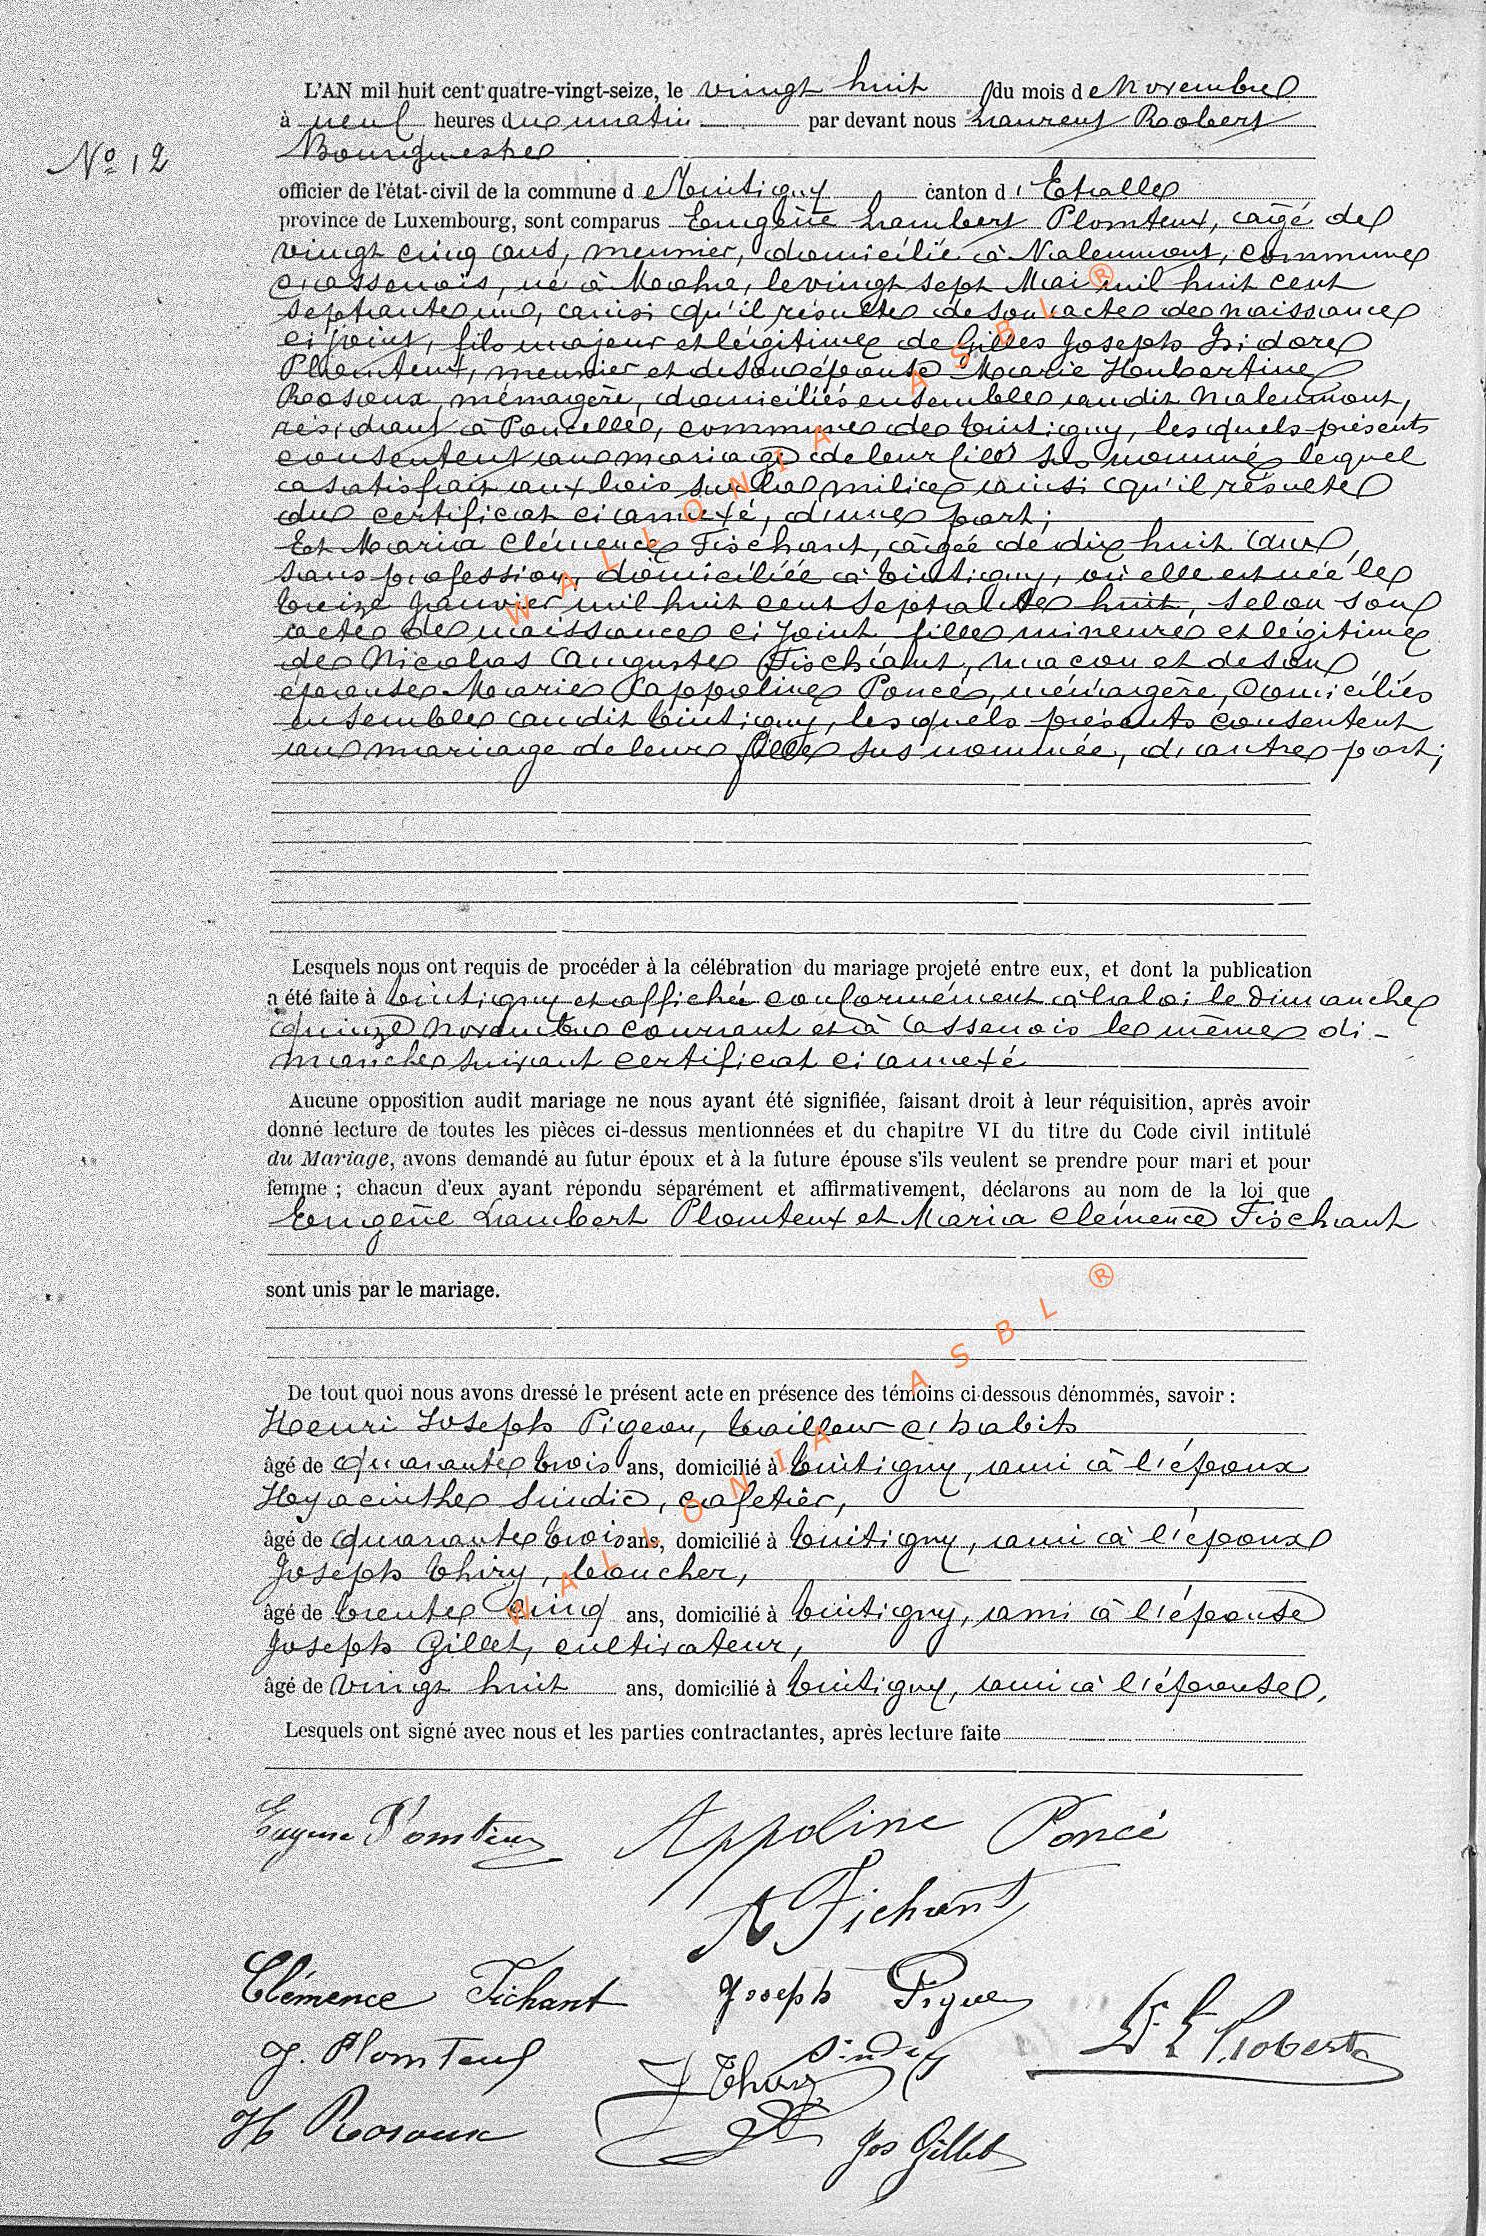 L'AN mil huit cent quatre-vingt-seize, le vingt huit du mois de Novembre
à neuf heures du matin par devant nous Laurent Robert
Nº 12
Bourgmestre
officier de l'état-civil de la commune de Tintigny canton d'Etalle
province de Luxembourg, sont comparus Eugène Lambert Plomteux, âgé de
vingt cinq ans, meunier, domicilié à Nalenmont, commune
d'assenois, né à Moha, le vingt sept Mai mil huit cent
septante un, ainsi qu'il résulte de son acte de naissance
ci joint, fils majeur et légitime de Gilles Joseph Isidore
Plomteux, meunier et de son épouse Marie Hubertine
Rosoux, ménagère, domiciliés ensemble audit Malenmont,
résidant à Poncelle, commune de Tintigny, lesquels présents
consentent au mariage de leur fils sus nommé lequel
a satisfait aux lois sur la milice ainsi qu'il résulte
du certificat ci annexé, d'une part;
Et Maria Clémence Fischant, âgée de dix huit ans,
sans profession, domiciliée à Tintigny, où elle est née le
treize Janvier mil huit cent septante huit, selon son
acte de naissance ci joint fille mineure et légitime
de Nicolas Auguste Fischant, maçon et de son
épouse Marie Appoline Poncé, ménagère, domiciliés
ensemble audit Tintigny, lesquels présents consentent
au mariage de leur fille sus nommée, d'autre part;
Lesquels nous ont requis de procéder à la célébration du mariage projeté entre eux, et dont la publication
a été faite à Tintigny et affichée conformément à la loi le Dimanche
quinze Novembre courant et à Assenois le même di-
manche suivant certificat ci annexé
Aucune opposition audit mariage ne nous ayant été signifiée, faisant droit à leur réquisition, après avoir
donné lecture de toutes les pièces ci-dessus mentionnées et du chapitre VI du titre du Code civil intitulé
du Mariage, avons demandé au futur époux et à la future épouse s'ils veulent se prendre pour mari et pour
femme ; chacun d'eux ayant répondu séparément et affirmativement, déclarons au nom de la loi que
Eugène Lambert Plomteux et Maria Clémence Fischant
sont unis par le mariage.
De tout quoi nous avons dressé le présent acte en présence des témoins ci-dessous dénommés, savoir :
Henri Joseph Pigeon, tailleur d'habits
âgé de quarante trois ans, domicilié à Tintigny, ami à l'époux
Hyacinthe Sindic, cafetier,
âgé de quarante trois ans, domicilié à Tintigny, ami à l'époux
Joseph Thiry, boucher,
âgé de trente cinq ans, domicilié à Tintigny, ami à l'épouse
Joseph Gillet, cultivateur,
âgé de vingt huit ans, domicilié à Tintigny, ami à l'épouse,
Lesquels ont signé avec nous et les parties contractantes, après lecture faite
Eugene Plomteux Appoline Poncé
A Fichant
Clémence Fichant Joseph Pigeon
L Robert
J. Plomteux Sindic
J Thiry
H Rosoux Jos Gillet
WALLONIA ASBL ®
WALLONIA ASBL ®